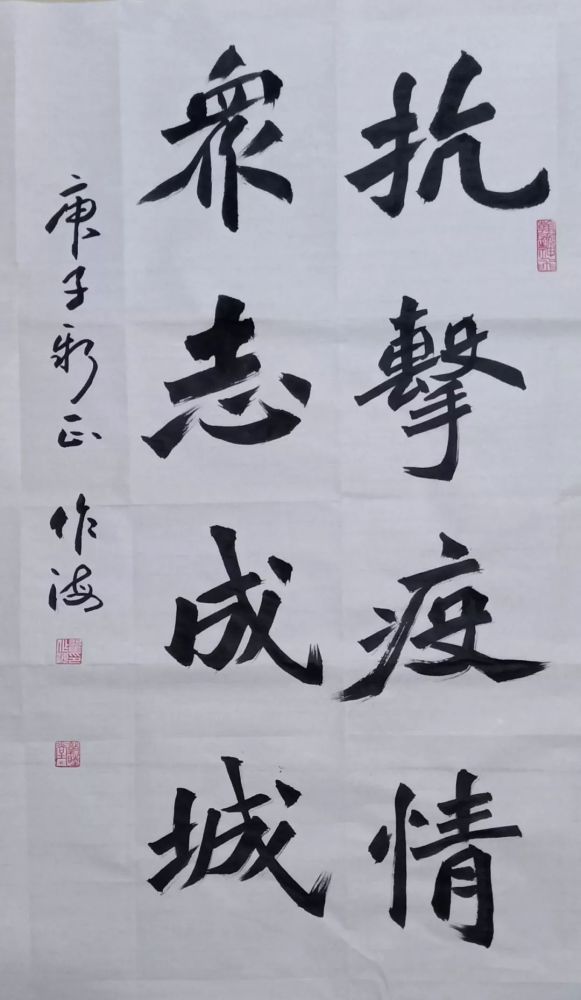 抗擊疫情
衆志成城
庚子新正 作海